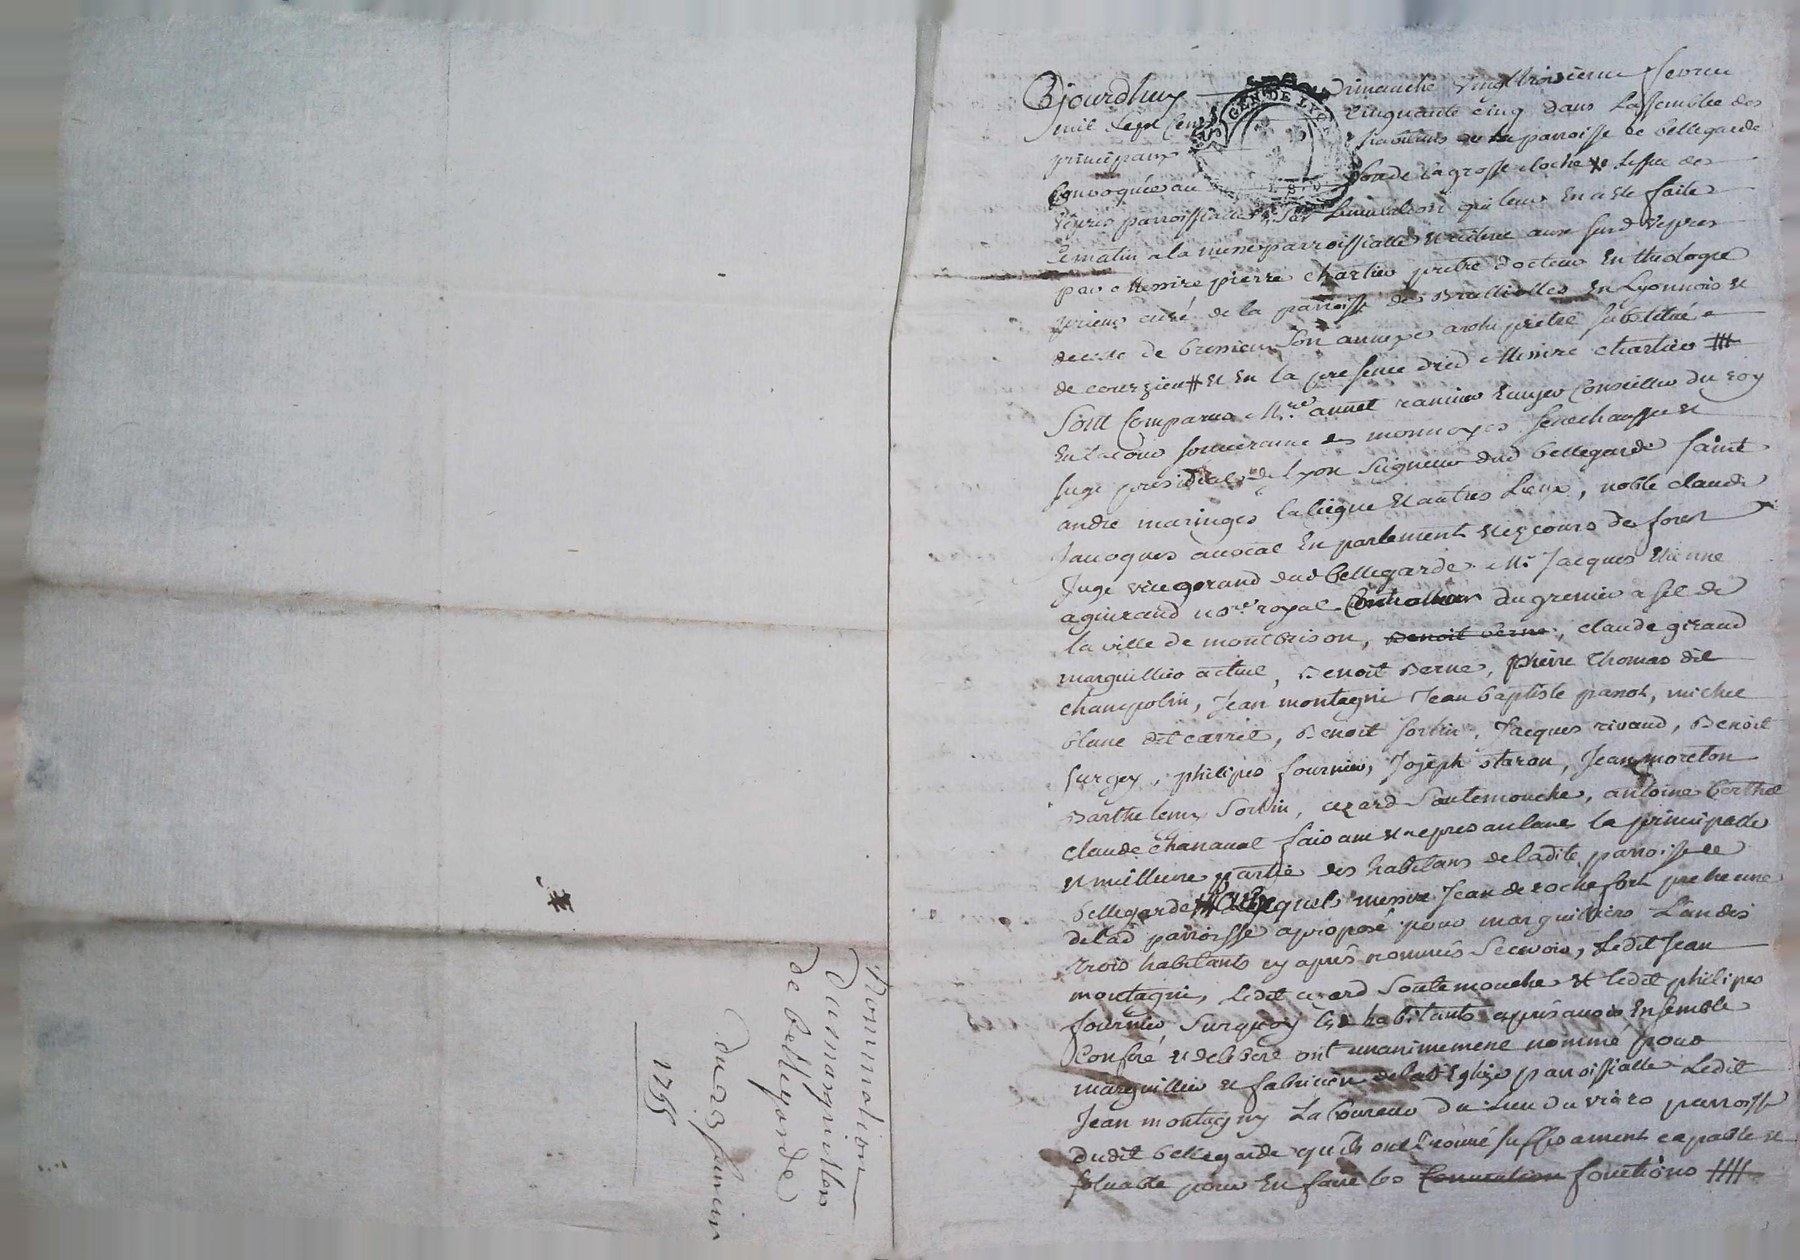 Nomination
du marguillier
de bellegarde
du 23 feuvrier
1755
Bjourdhuy dimanche vingttroisieme feuvrier
mil sept cens cinquante cinq dans lassemblee des
principaux habitans de la parroisse de bellegarde
Convoquée au son de la grosse cloche a lissue des
vepres parroissialles, sur linvitation qui leur en a ete faite
ce matin a la messe parroissialle et reiteree aux susd vepres
par Messire pierre chartier pretre docteur en theologie
prieur curé de la parroisse de Brullioles en Lyonnois et
de celle de bressieu son annexe archipretré substitué
de courzieu # et en la presence dud Messire chartier ##
Sont Comparus Mre annet ranvier ecuyer Conseiller du roy
en la cour souveraine des monnoyes senechaussée et
siege presidial de Lyon Seigneur dud bellegarde saint
andré maringes laliegue et autres Lieux, noble claude
Javoques avocat en parlement et es cours de forest
Juge vicegerand dud bellegarde Mr Jacques etienne
aguiraud nore royal Controlleur du grenier a sel de
la ville de montbrison, Benoit berne, claude giraud
marguillier actuel, Benoit Berne, pierre thomas dit
champolin, Jean montagni Jean baptiste panot, michel
blanc dit carret, Benoit Sorbin, Jacques rivaud, Benoit
Surgey, philipes fournier, Joseph staron, Jean moreton
Barthelemy Sorbin, cezard Soutemouche, antoine berthet
claude chanavat faisant et representant la principalle
et meilleure partie des habitans de ladite parroisse de
bellegarde auxquels messire Jean de rochefort
de lad parroisse a proposé pour marguilliers Lun des
trois habitants cy aprês nommés Scavoir, Ledit Jean
montagni, Ledit cezard Soutemouche et ledit philipes
fournier Surquoy lesd habitants apres avoir ensemble
Conferé et deliberé ont unanimement nommé pour
marguillier et fabricien de lad Eglize parroissialle Ledit
Jean montagny Laboureur du Lieu du viaro parroisse
dudit bellegarde qu'ils ont trouvé suffisament capable et
solvable pour en faire les fonctions ##
GEN DE LYON